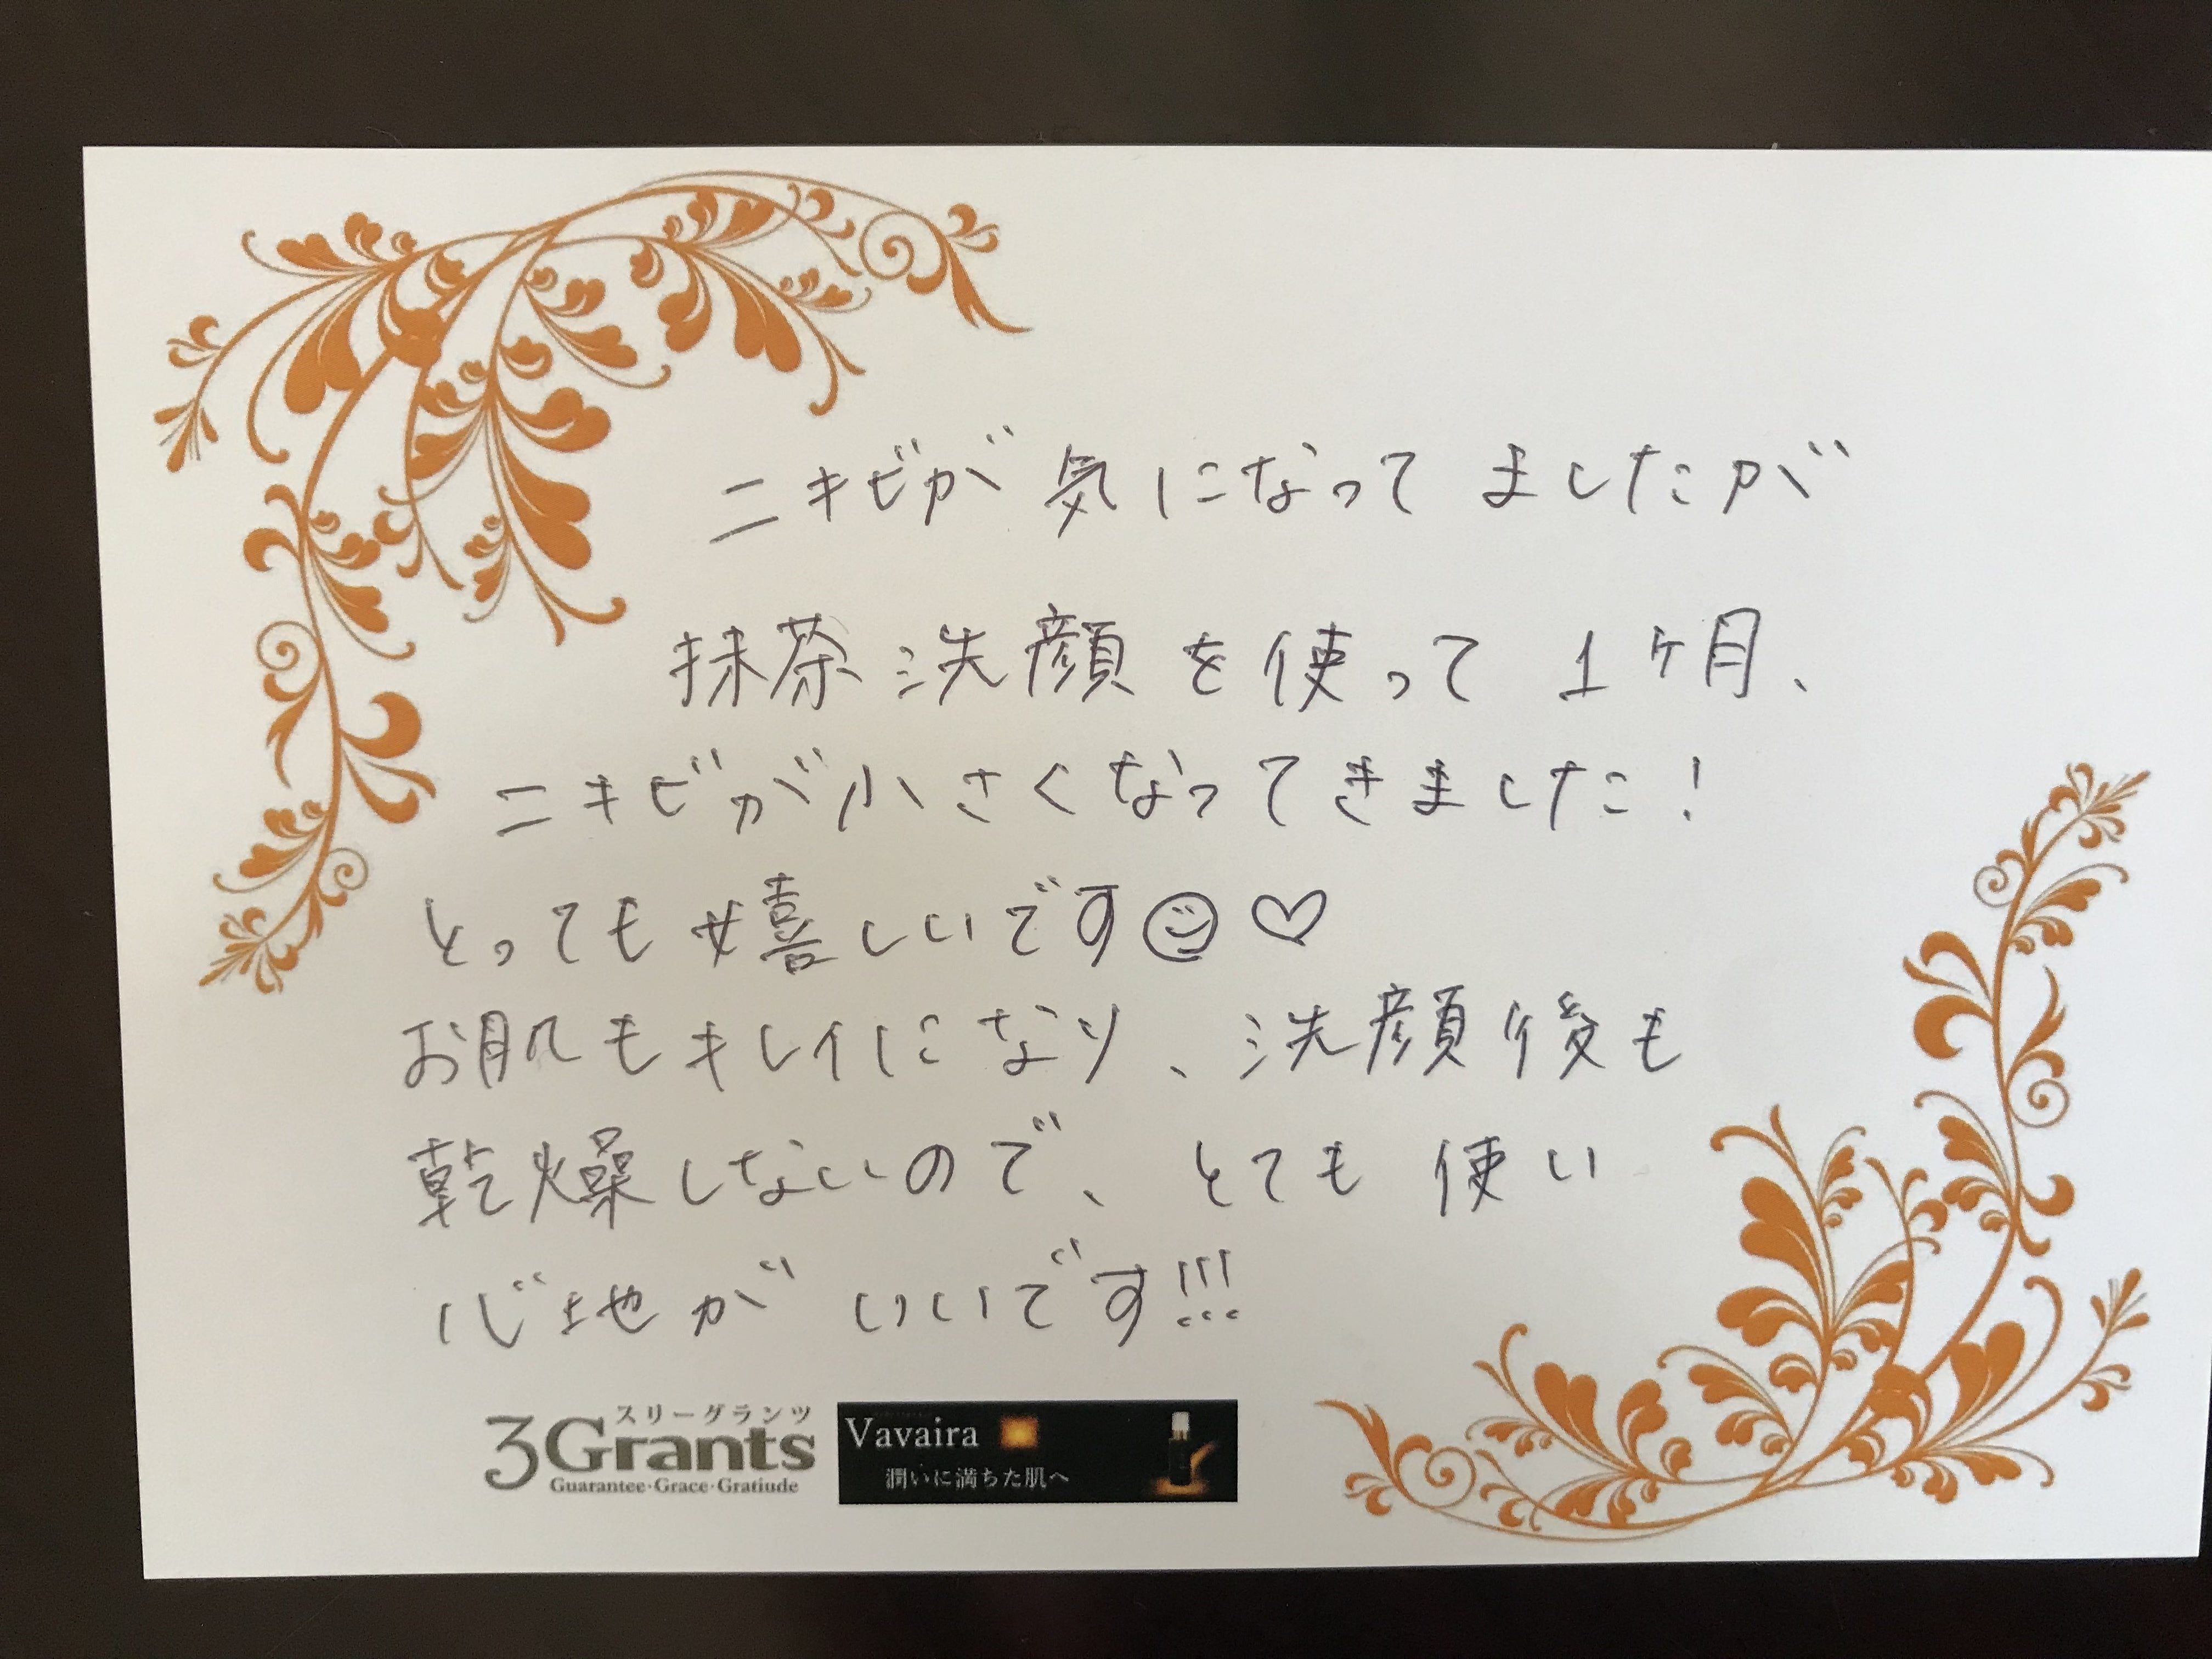 ニキビが気になってましたが
抹茶洗顔を使って1ヶ月、
ニキビが小さくなってきました!
とっても嬉しいです☺♡
お肌もキレイになり、洗顔後も
乾燥しないので、とても使い
心地がいいです!!!
スリーグランツ
3Grants
Guarantee·Grace·Gratiude
Vavaira
潤いに満ちた肌へ